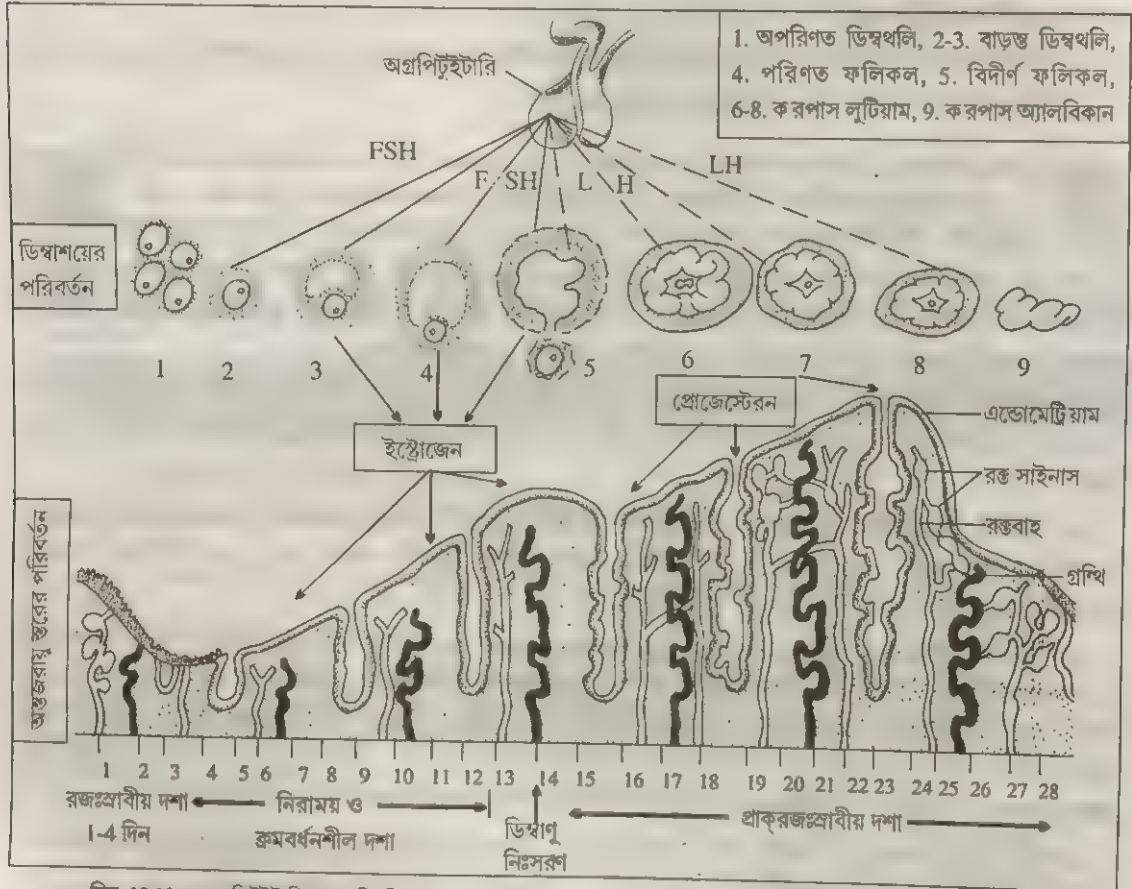 1. অপরিণত ডিম্বথলি, 2-3. বাড়ন্ত ডিম্বথলি,
4. পরিণত ফলিকল, 5. বিদীর্ণ ফলিকল,
6-8. করপাস লুটিয়াম, 9. করপাস অ্যালবিকান
অগ্রপিটুইটারি
FSH
F SH
L H
LH
ডিম্বাশয়ের
পরিবর্তন
1 2 3 4 5 6 7 8 9
প্রোজেস্টেরন
ইস্ট্রোজেন
এন্ডোমেট্রিয়াম
রক্ত সাইনাস
রক্তবাহ
গ্রন্থি
অন্তজরায়ু স্তরের পরিবর্তন
1 2 3 4 5 6 7 8 9 10 11 12 13 14 15 16 17 18 19 20 21 22 23 24 25 26 27 28
রজঃস্রাবীয় দশা
1-4 দিন
নিরাময় ও
ক্রমবর্ধনশীল দশা
ডিম্বাণু
নিঃসরণ
প্রাক্‌রজঃস্রাবীয় দশা